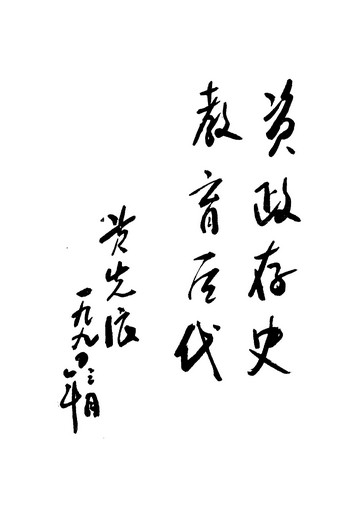 资政存史
教育后代
先
一九九〇年三月